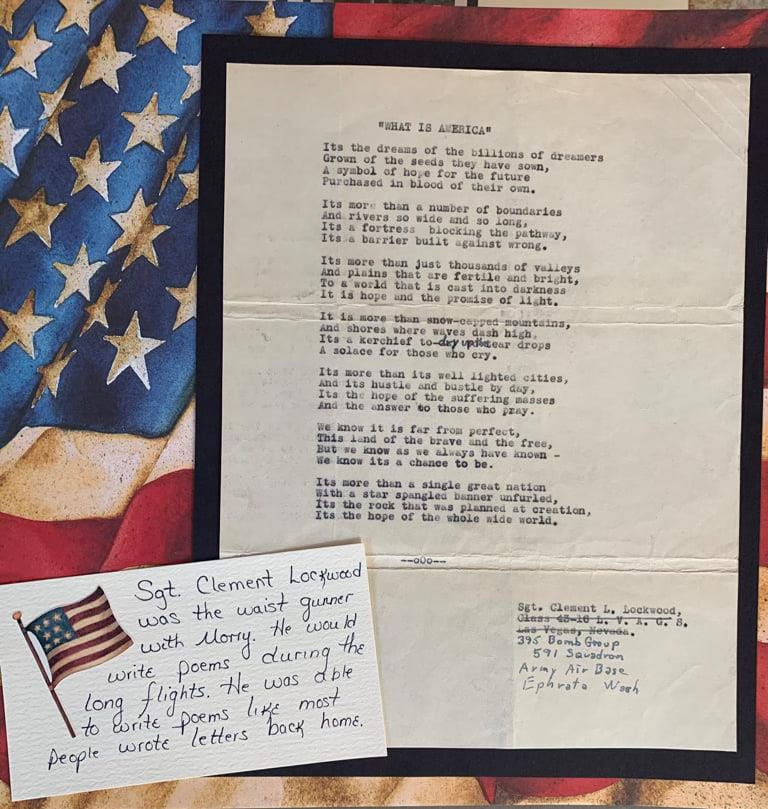 "WHAT IS AMERICA"
Its the dreams of the billions of dreamers
Grown of the seeds they have sown,
A symbol of hope for the future
Purchased in blood of their own.
Its more than a number of boundaries
And rivers so wide and so long,
Its a fortress blocking the pathway,
Its a barrier built against wrong.
Its more than just thousands of valleys
And plains that are fertile and bright,
To a world that is cast into darkness
It is hope and the promise of light.
It is more than snow-capped mountains,
And shores where waves dash high,
Its a kerchief to dry up the tear drops
A solace for those who cry.
Its more than its well lighted cities,
And its hustle and bustle by day,
Its the hope of the suffering masses
And the answer to those who pray.
We know it is far from perfect,
This land of the brave and the free,
But we know as we always have known -
We know its a chance to be.
Its more than a single great nation
With a star spangled banner unfurled,
Its the rock that was planned at creation,
Its the hope of the whole wide world.
--oOo--
Sgt. Clement L. Lockwood,
Class 43-16 L. V. A. G. S.
Las Vegas, Nevada.
395 Bomb Group
591 Squadron
Army Air Base
Ephrata Wash
Sgt. Clement Lockwood
was the waist gunner
with Morry. He would
write poems during the
long flights. He was able
to write poems like most
people wrote letters back home.